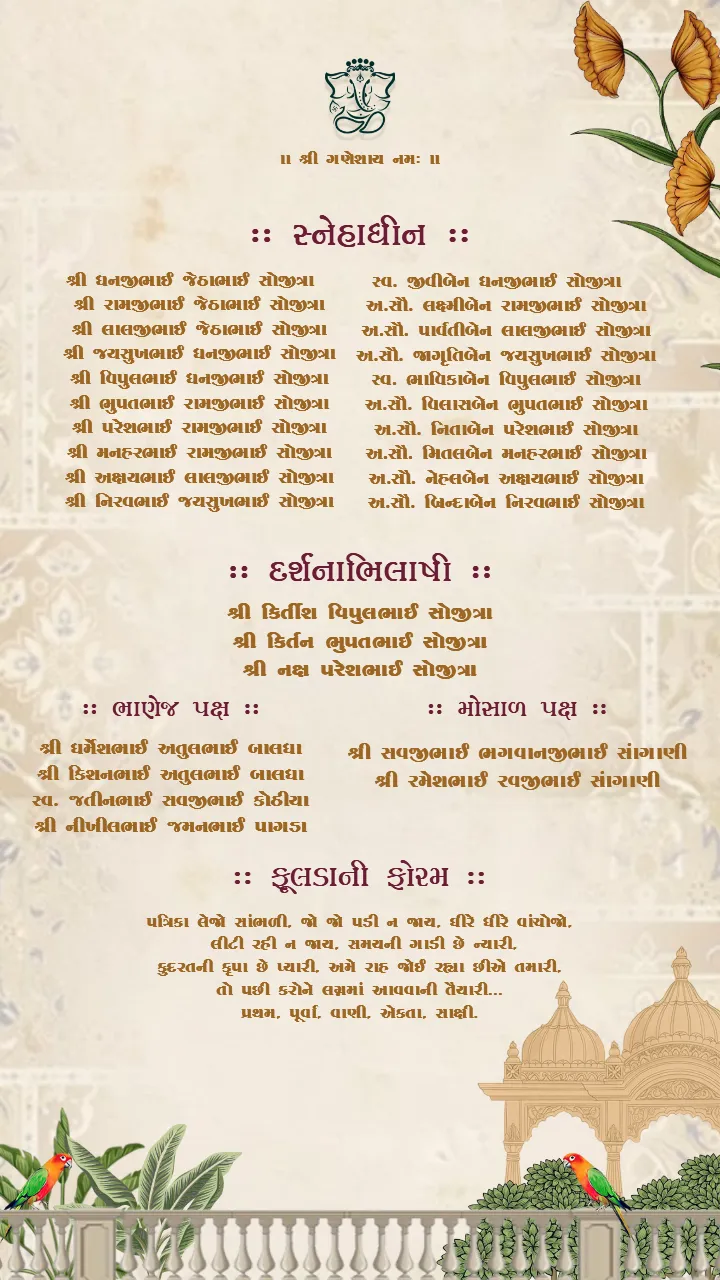 ॥ શ્રી ગણેશાય નમઃ ॥
:: સ્નેહાધીન ::
શ્રી ધનજીભાઈ જેઠાભાઈ સોજીત્રા
શ્રી રામજીભાઈ જેઠાભાઈ સોજીત્રા
શ્રી લાલજીભાઈ જેઠાભાઈ સોજીત્રા
શ્રી જયસુખભાઈ ધનજીભાઈ સોજીત્રા
શ્રી વિપુલભાઈ ધનજીભાઈ સોજીત્રા
શ્રી ભુપતભાઈ રામજીભાઈ સોજીત્રા
શ્રી પરેશભાઈ રામજીભાઈ સોજીત્રા
શ્રી મનહરભાઈ રામજીભાઈ સોજીત્રા
શ્રી અક્ષયભાઈ લાલજીભાઈ સોજીત્રા
શ્રી નિરવભાઈ જયસુખભાઈ સોજીત્રા
સ્વ. જીવીબેન ધનજીભાઈ સોજીત્રા
અ.સૌ. લક્ષ્મીબેન રામજીભાઈ સોજીત્રા
અ.સૌ. પાર્વતીબેન લાલજીભાઈ સોજીત્રા
અ.સૌ. જાગૃતિબેન જયસુખભાઈ સોજીત્રા
સ્વ. ભાવિકાબેન વિપુલભાઈ સોજીત્રા
અ.સૌ. વિલાસબેન ભુપતભાઈ સોજીત્રા
અ.સૌ. નિતાબેન પરેશભાઈ સોજીત્રા
અ.સૌ. મિતલબેન મનહરભાઈ સોજીત્રા
અ.સૌ. નેહલબેન અક્ષયભાઈ સોજીત્રા
અ.સૌ. બ્રિન્દાબેન નિરવભાઈ સોજીત્રા
:: દર્શનાભિલાષી ::
શ્રી કિર્તીશ વિપુલભાઈ સોજીત્રા
શ્રી કિર્તન ભુપતભાઈ સોજીત્રા
શ્રી નક્ષ પરેશભાઈ સોજીત્રા
:: ભાણેજ પક્ષ ::
શ્રી ધર્મેશભાઈ અતુલભાઈ બાલધા
શ્રી કિશનભાઈ અતુલભાઈ બાલધા
સ્વ. જતીનભાઈ સવજીભાઈ કોઠીયા
શ્રી નીખીલભાઈ જમનભાઈ પાગડા
:: મોસાળ પક્ષ ::
શ્રી સવજીભાઈ ભગવાનજીભાઈ સાંગાણી
શ્રી રમેશભાઈ રવજીભાઈ સાંગાણી
:: ફૂલડાની ફોરમ ::
પત્રિકા લેજો સાંભળી, જો જો પડી ન જાય, ધીરે ધીરે વાંચોજો,
લીટી રહી ન જાય, સમયની ગાડી છે ન્યારી,
કુદરતની કૃપા છે પ્યારી, અમે રાહ જોઈ રહ્યા છીએ તમારી,
તો પછી કરોને લગ્નમાં આવવાની તૈયારી...
પ્રથમ, પૂર્વા, વાણી, એકતા, સાક્ષી.